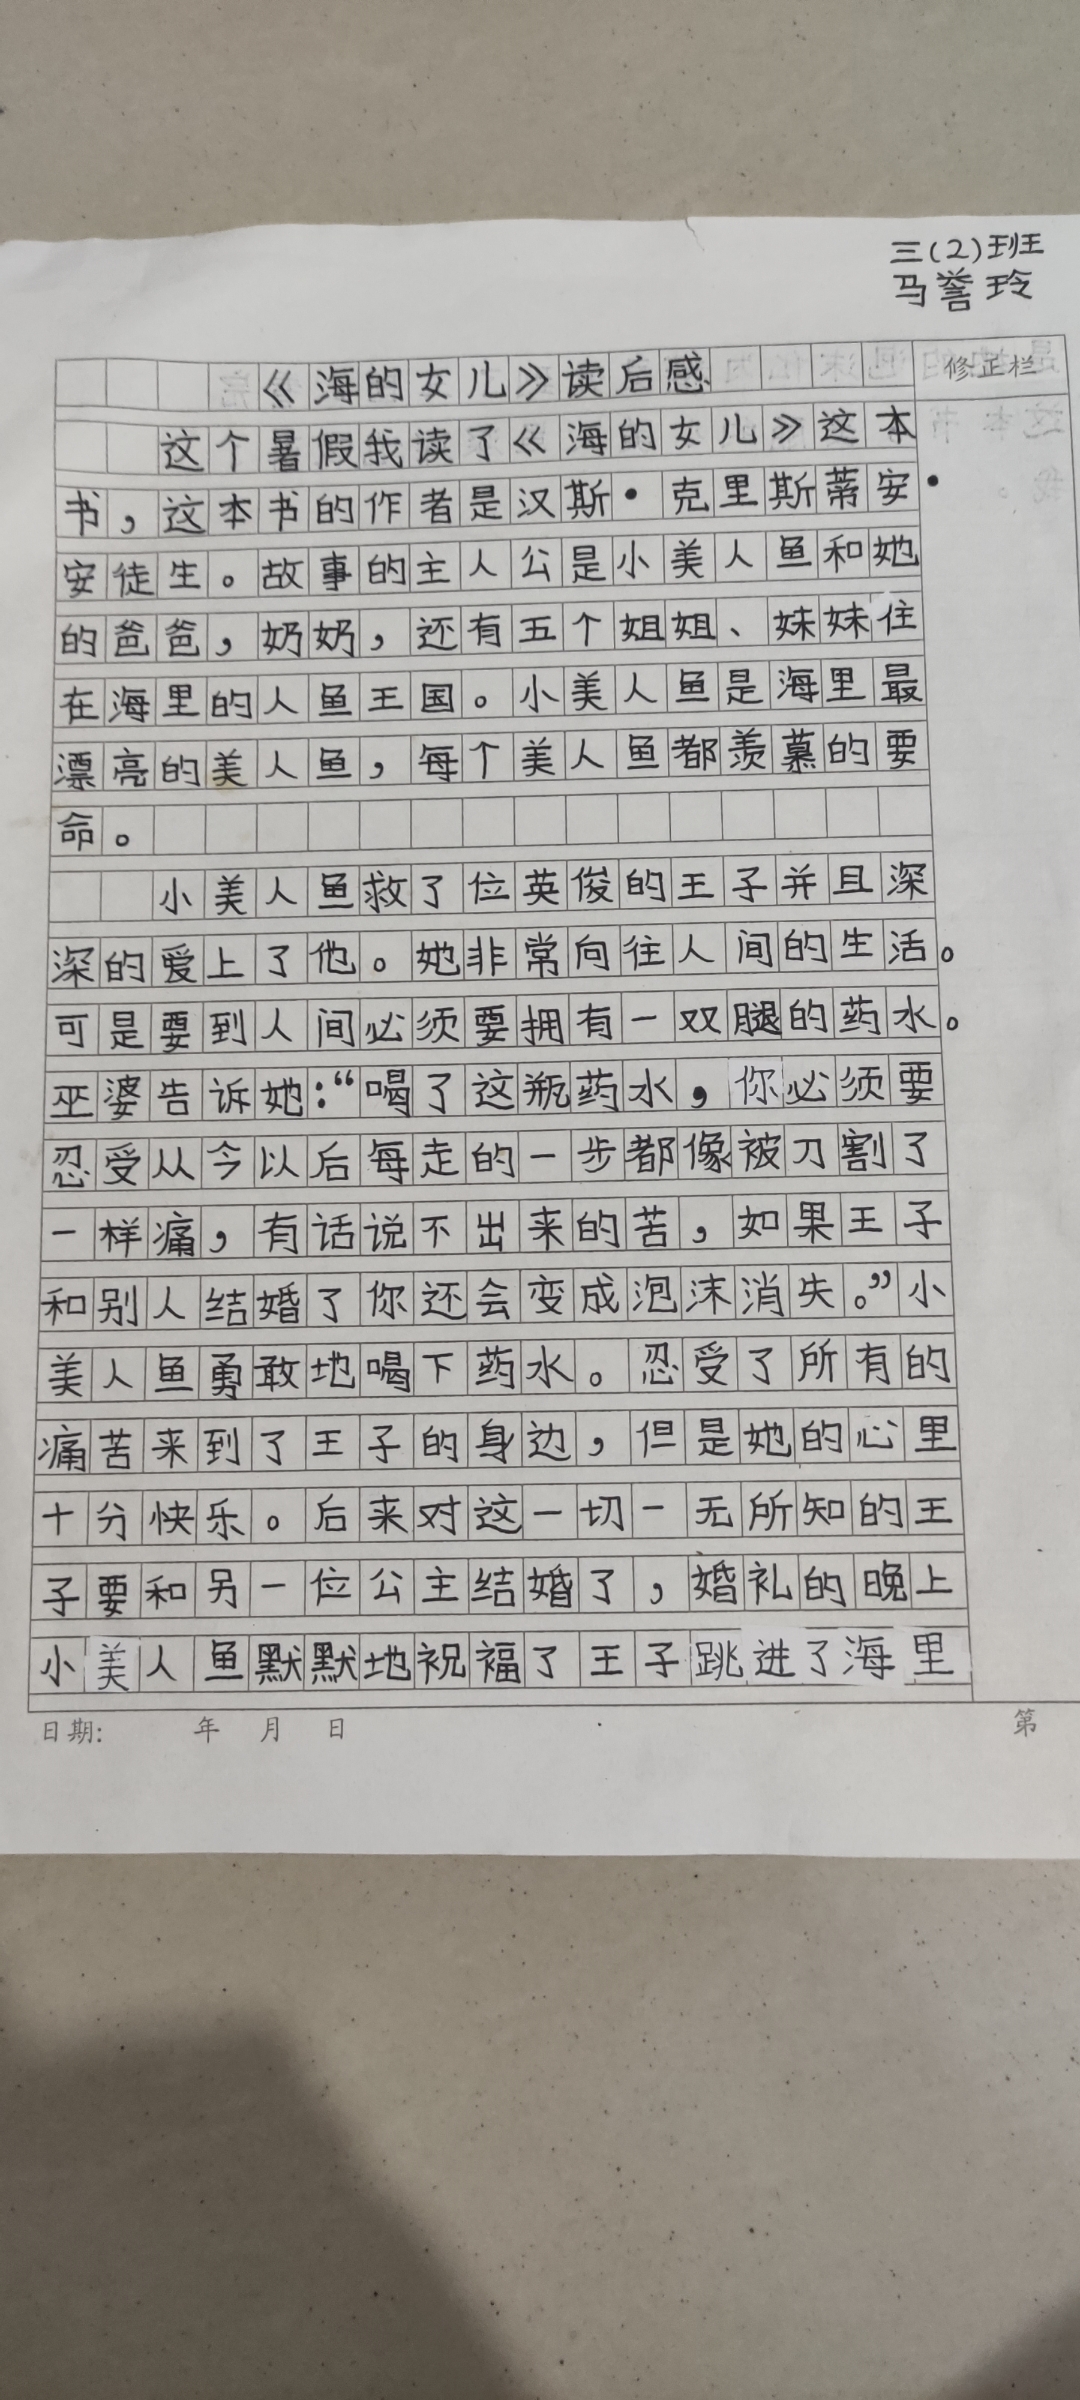 三(2)班
马誉玲
《海的女儿》读后感
修正栏
这个暑假我读了《海的女儿》这本
书，这本书的作者是汉斯·克里斯蒂安·
安徒生。故事的主人公是小美人鱼和她
的爸爸，奶奶，还有五个姐姐、妹妹住
在海里的人鱼王国。小美人鱼是海里最
漂亮的美人鱼，每个美人鱼都羡慕的要
命。
小美人鱼救了位英俊的王子并且深
深的爱上了他。她非常向往人间的生活。
可是要到人间必须要拥有一双腿的药水。
巫婆告诉她：“喝了这瓶药水，你必须要
忍受从今以后每走的一步都像被刀割了
一样痛，有话说不出来的苦，如果王子
和别人结婚了你还会变成泡沫消失。”小
美人鱼勇敢地喝下药水。忍受了所有的
痛苦来到了王子的身边，但是她的心里
十分快乐。后来对这一切一无所知的王
子要和另一位公主结婚了，婚礼的晚上
小美人鱼默默地祝福了王子跳进了海里
日期: 年 月 日
第